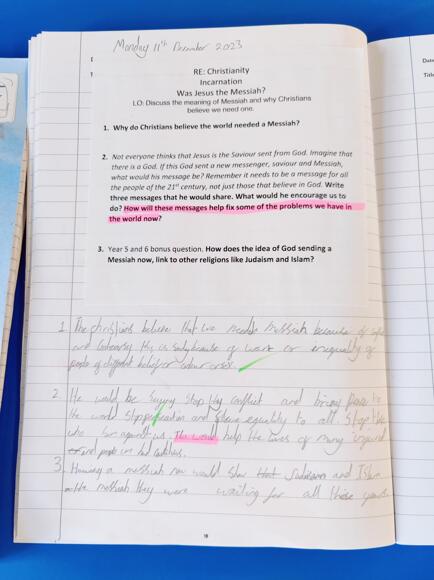 Monday 11th December 2023
RE: Christianity
Incarnation
Was Jesus the Messiah?
LO: Discuss the meaning of Messiah and why Christians
believe we need one.
1. Why do Christians believe the world needed a Messiah?
2. Not everyone thinks that Jesus is the Saviour sent from God. Imagine that
there is a God. If this God sent a new messenger, saviour and Messiah,
what would his message be? Remember it needs to be a message for all
the people of the 21st century, not just those that believe in God. Write
three messages that he would share. What would he encourage us to
do? How will these messages help fix some of the problems we have in
the world now?
3. Year 5 and 6 bonus question. How does the idea of God sending a
Messiah now, link to other religions like Judaism and Islam?
1. The christians believe that we needed a messiah because of
and because of wars or inequality of
people of different beliefs or colour
2. He would be saying stop the conflict and bring peace
He would stop and share equality to all. Stop the
who are against us. This would help the lives of many injured
and people
3. Having a messiah now would show that Judaism and Islam
the messiah they were waiting for all these years.
18
Date
Title